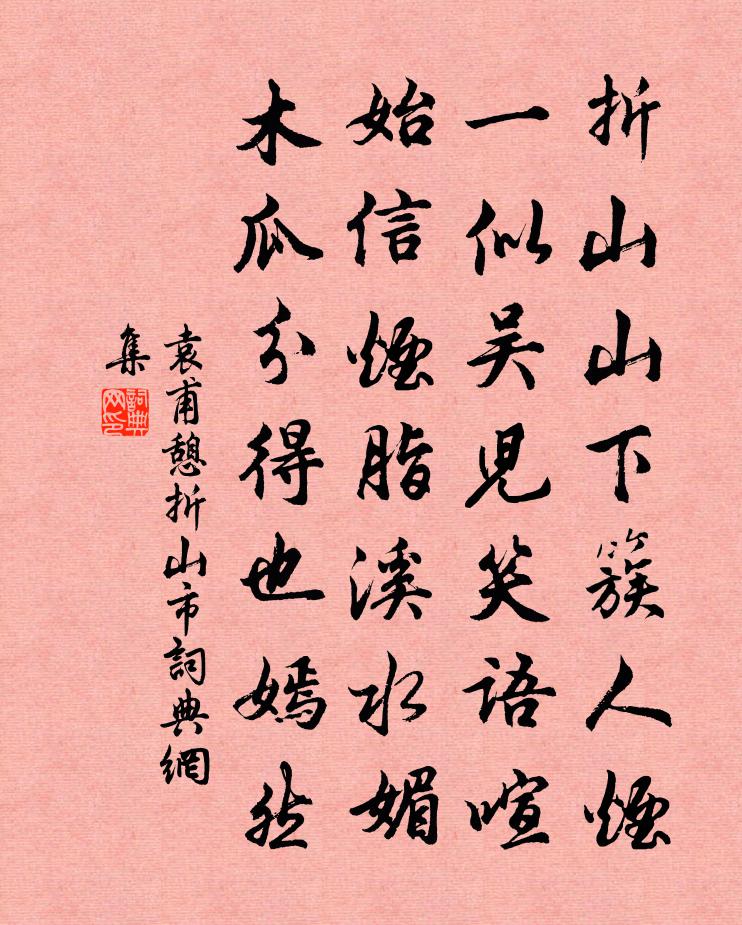 折山山下簇人煙
一似吴児笑語喧
始信煙脂溪水媚
木瓜分得也嫣然
袁甫憩折山市詞典網
集
詞典
网印